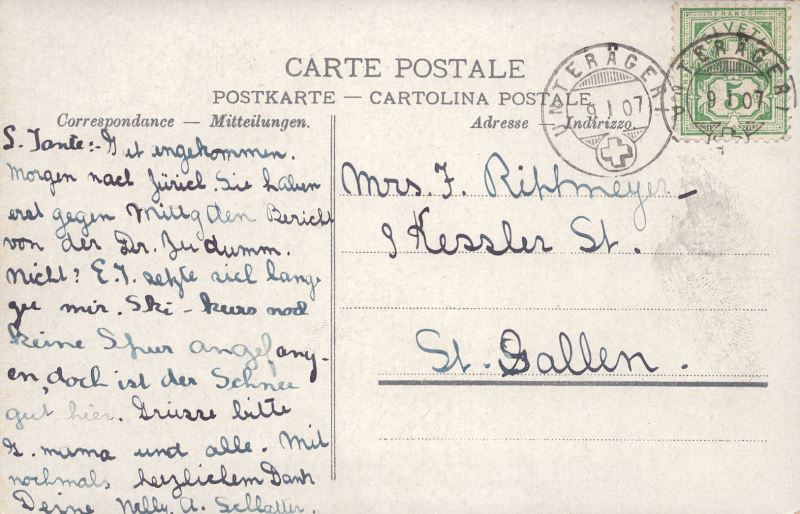 CARTE POSTALE
POSTKARTE — CARTOLINA POSTALE
Correspondance — Mitteilungen.
Adresse — Indirizzo.
FRANCO
HELVETIA
5
UNTERÄGERI
9 I 07
UNTERÄGERI
9 I 07
L. Tante:- Gut angekommen.
Morgen nach Zürich. Sie haben
erst gegen Mittg den Bericht
von der Dr. Zu dumm.
Nicht? E.T. setzte sich lang-
 mir. Ski - kurs noch
keine Spur angefang-
en, doch ist der Schnee
gut hier. Grüsse bitte
G. mama und alle. Mit
nochmals herzlichem Dank
Deine Nelly. A. Schlatter.
Mrs. F. Rittmeyer
9 Kessler St.
St. Gallen.